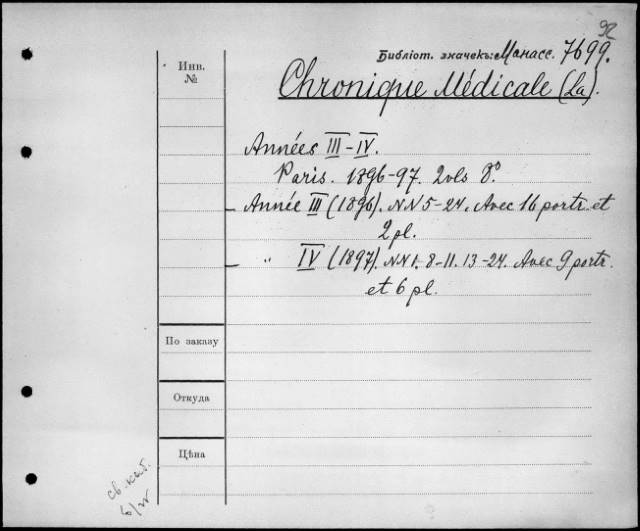 92
Библіот. значекъ: Манасс. 7699.
Инв.
№
Chronique Médicale (La).
Années III-IV.
Paris. 1896-97. 2 vls 8°
Année III (1896). NN 5-24. Avec 16 portr. et
2 pl.
" IV (1897). NN 1. 8-11. 13-24. Avec 9 portr.
et 6 pl.
По заказу
Откуда
Цѣна
св. кат.